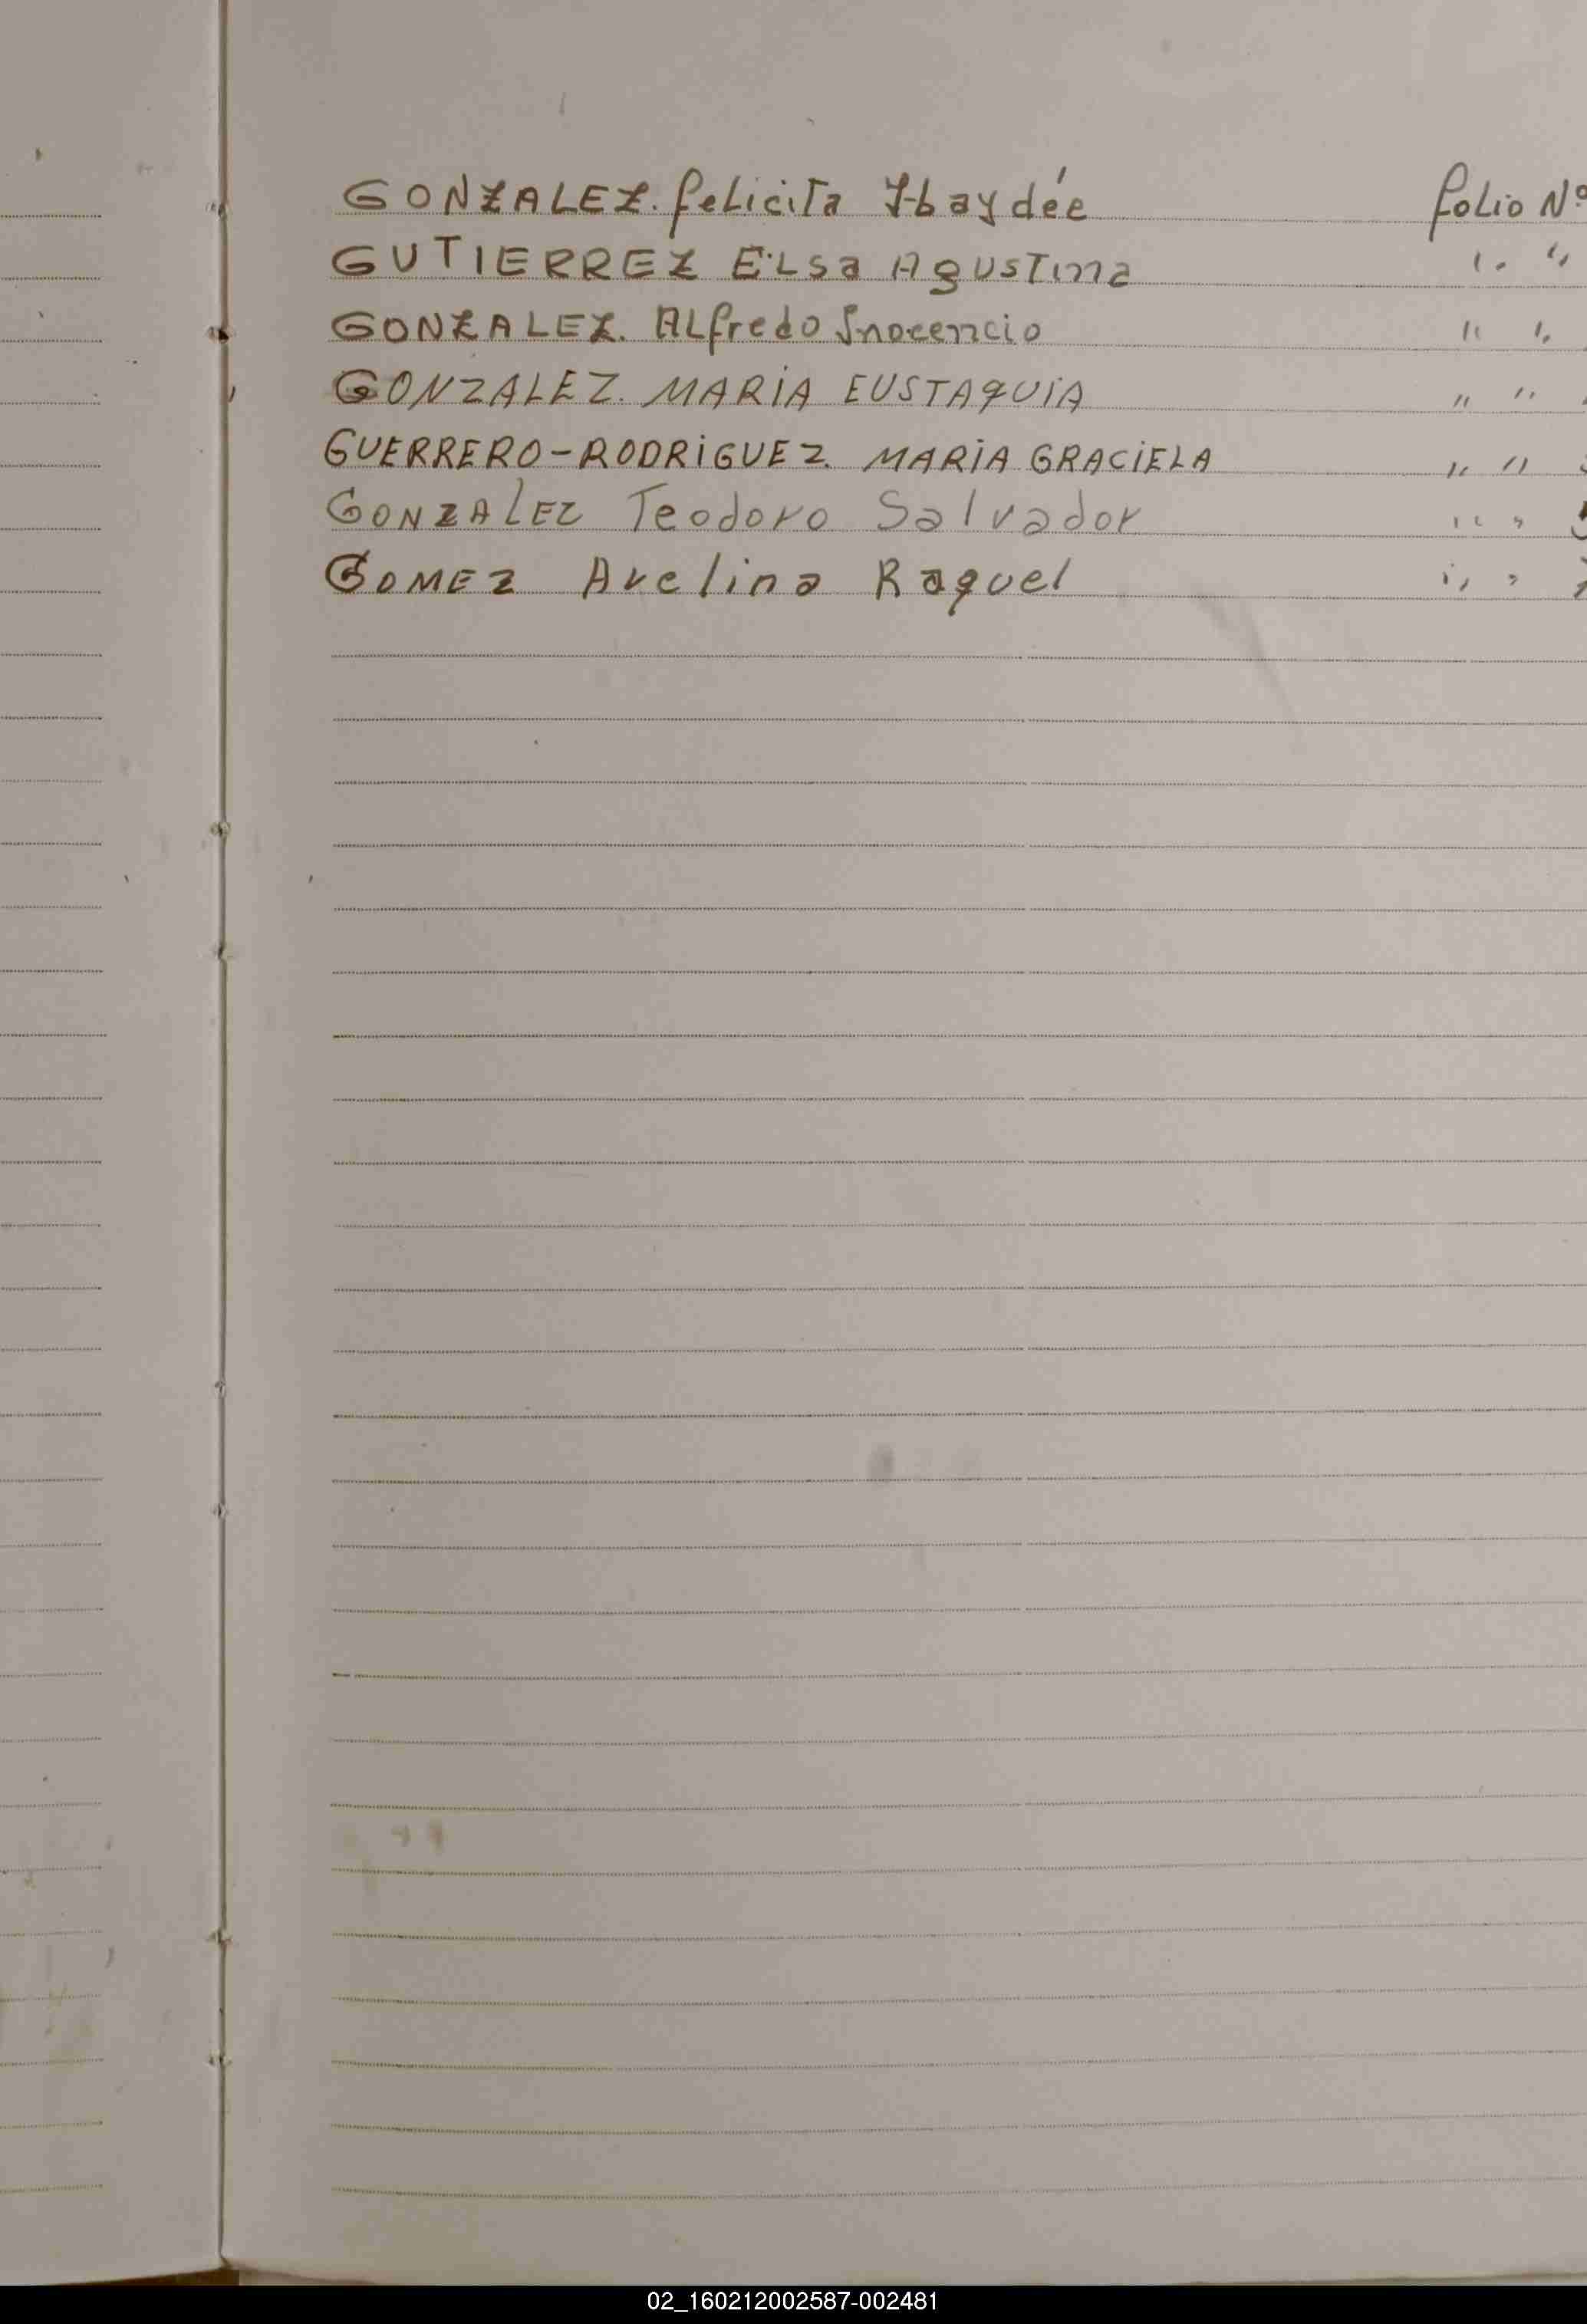 GONZALEZ. felicita Haydée folio Nº
GUTIERREZ ELSa AgUSTina " "
GONZALEZ. ALfredo Inocencio " "
GONZALEZ. MARiA EUSTAqUiA " "
GUERRERO-RODRiGUEZ. MARiA GRACiELA " "
GONZALEZ Teodoro Salvador " "
GOMEZ Avelina Raquel " "
02_160212002587-002481